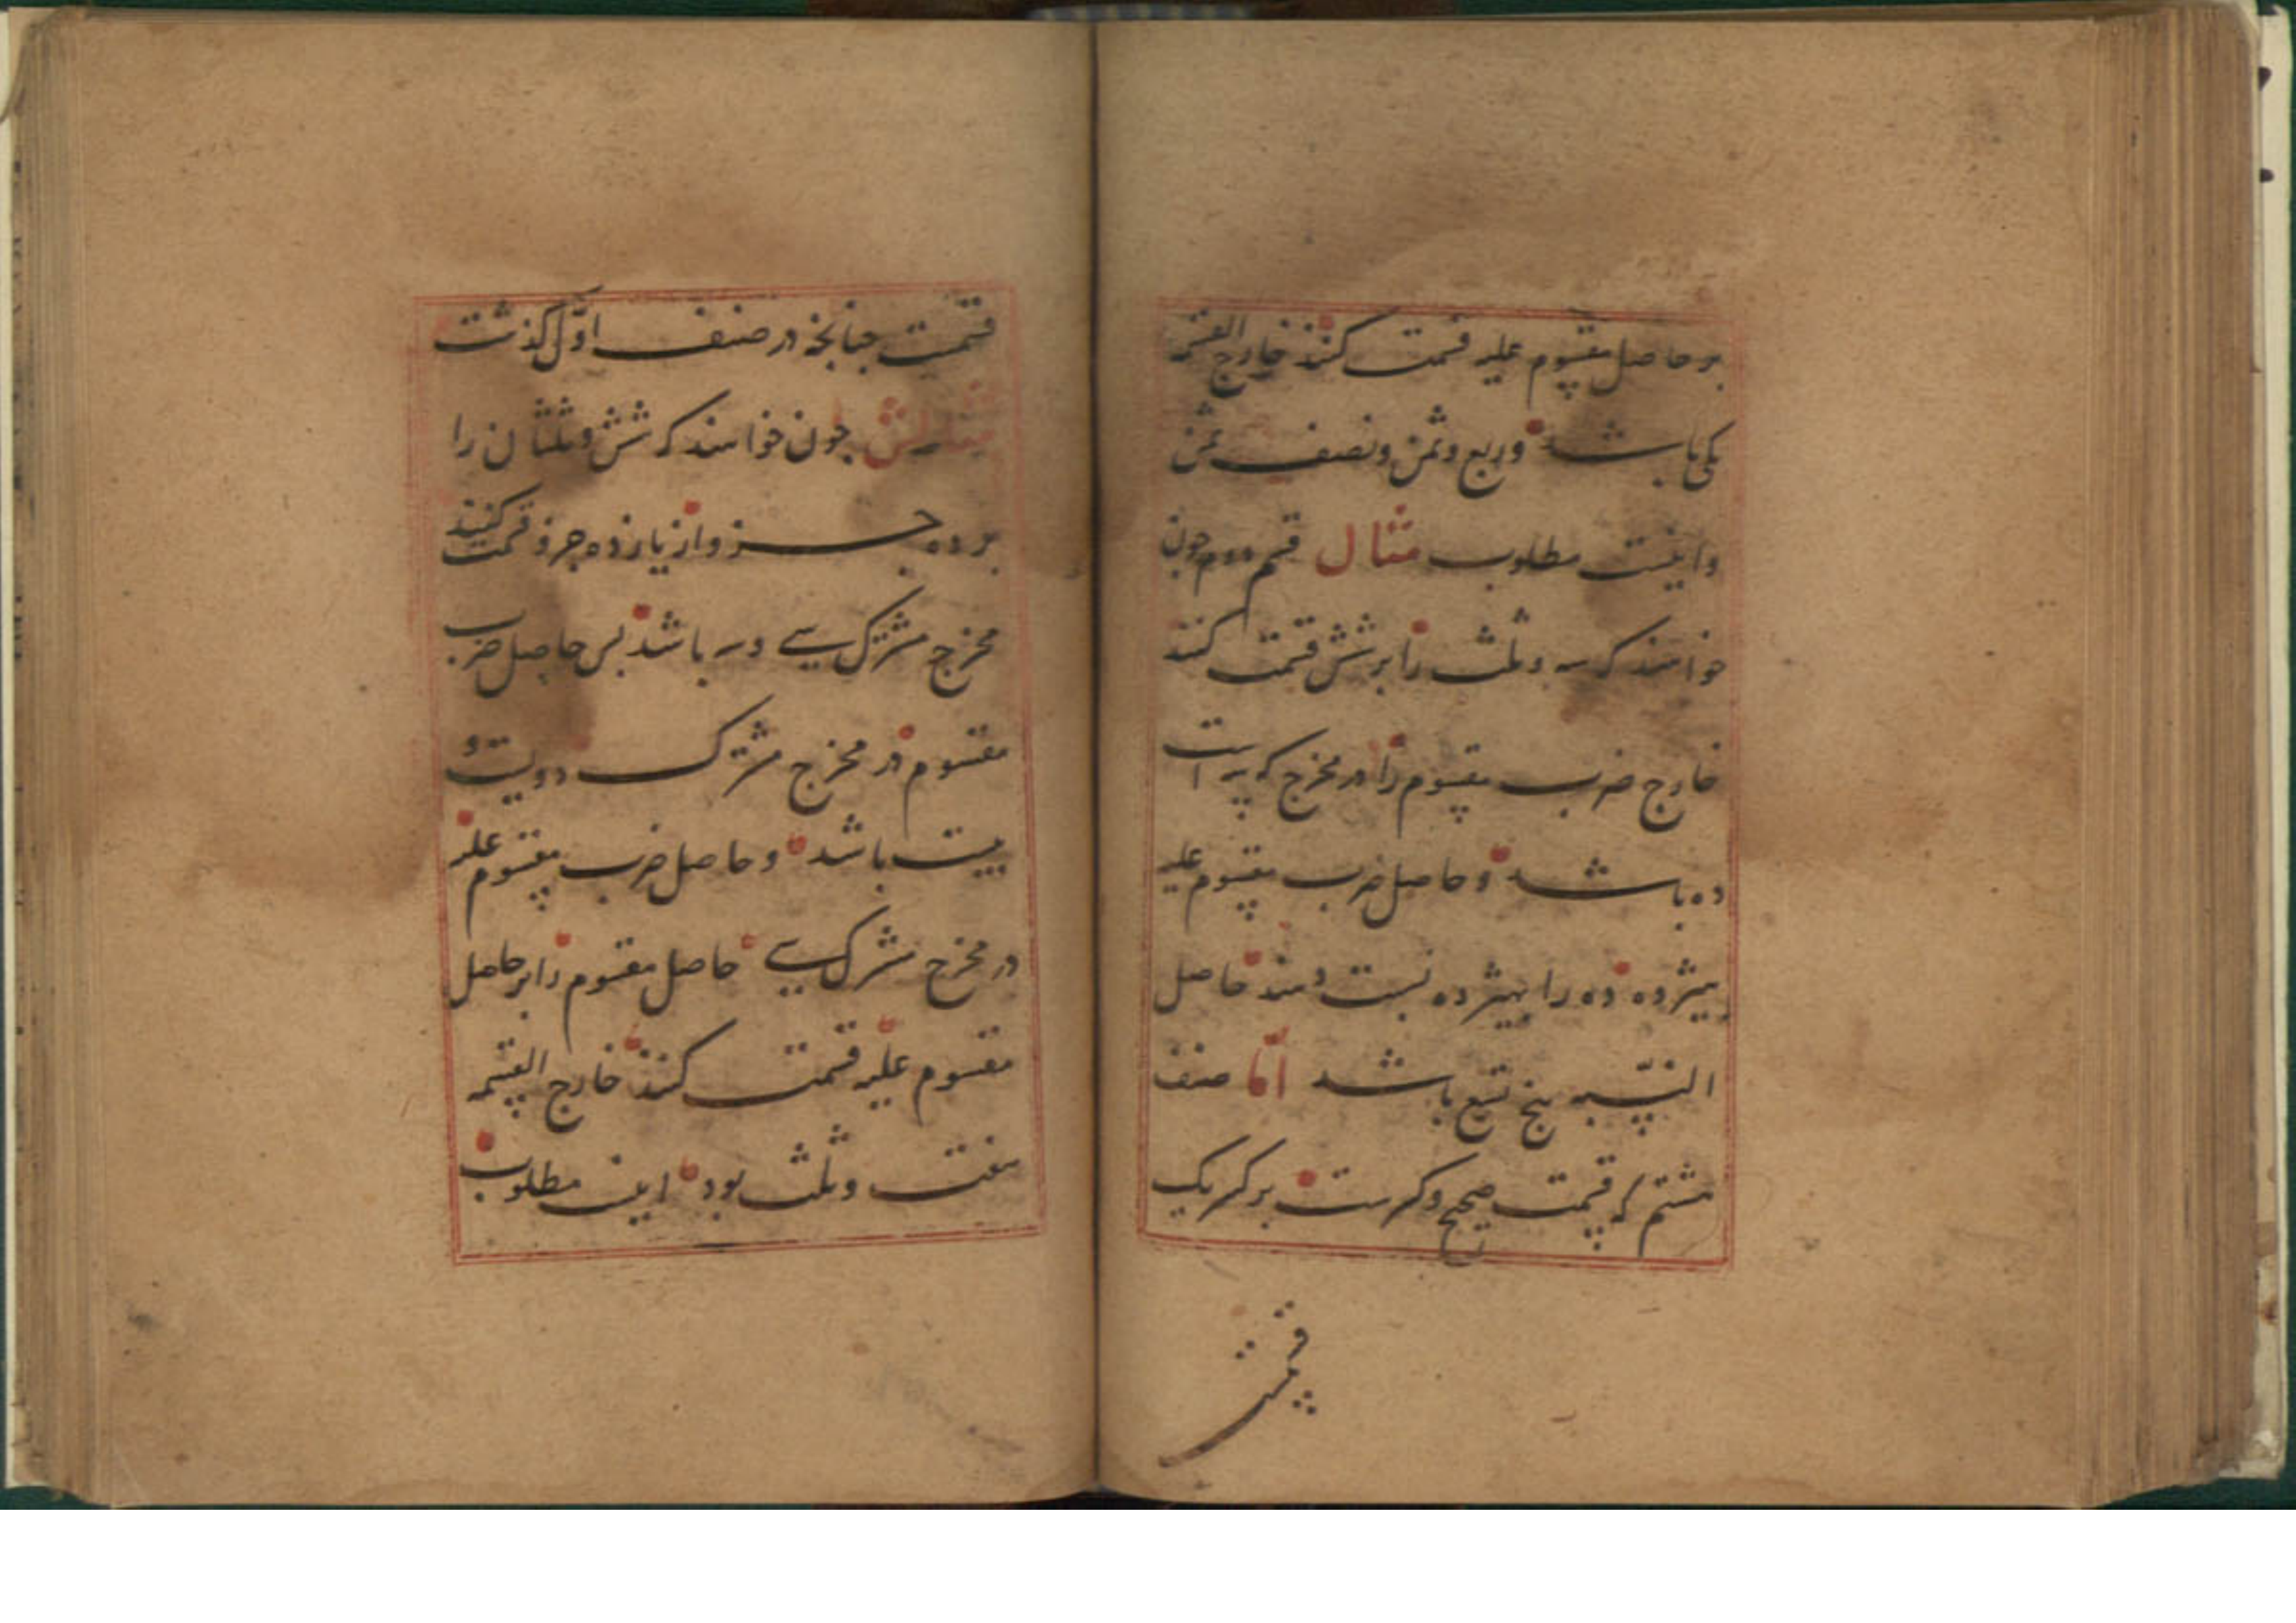 بر حاصل مقسوم علیه قسمت کنند خارج القسمه
یکی باشد و ربع و ثمن و نصف ثمن
و اینست مطلوب مثال قسم دوم چون
خواهند که سه و ثلث را بر شش قسمت کنند
خارج ضرب مقسوم را در مخرج که سه است
ده باشد و حاصل ضرب مقسوم علیه
هیژده ده را بهیژده نسبت دهند حاصل
النسبه پنج تسع باشد اما صنف
هشتم که قسمت صحیح و کسرست بر کسر یک
قسمت
قسمت جنانجه در صنف اول کذشت
مثالش جون خواهند که شش و ثلثان را
بر ده جزو از یازده جزو قسمت کنند
مخرج مشترک سی و سه باشد بس حاصل ضرب
مقسوم در مخرج مشترک دویست و
بیست باشد و حاصل ضرب مقسوم علیه
در مخرج مشترک سی حاصل مقسوم را بر حاصل
مقسوم علیه قسمت کنند خارج القسمه
هفت و ثلث بود اینست مطلوب